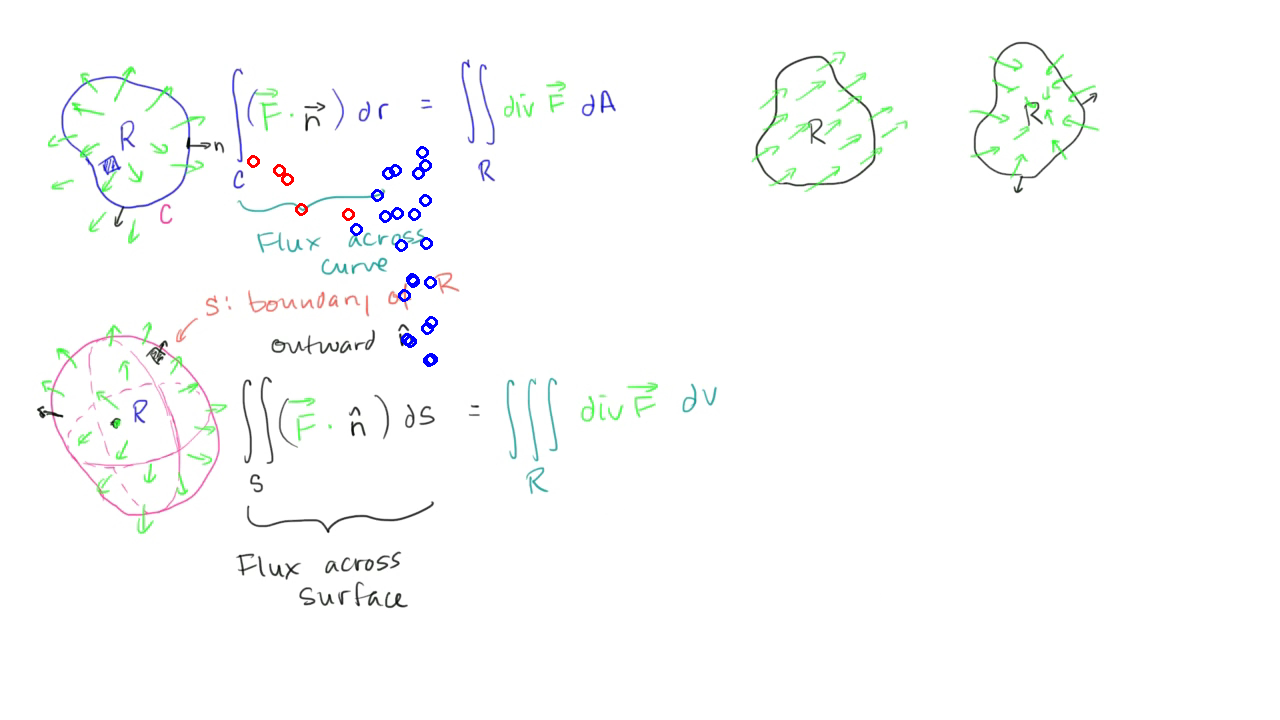 R
n
C
∫ (F⃗ · n⃗) dr = ∬ div F⃗ dA
C
R
Flux across
curve
R
R
S: boundary of R
outward n̂
R
∬ (F⃗ · n̂) ds = ∭ div F⃗ dv
S
R
Flux across
surface